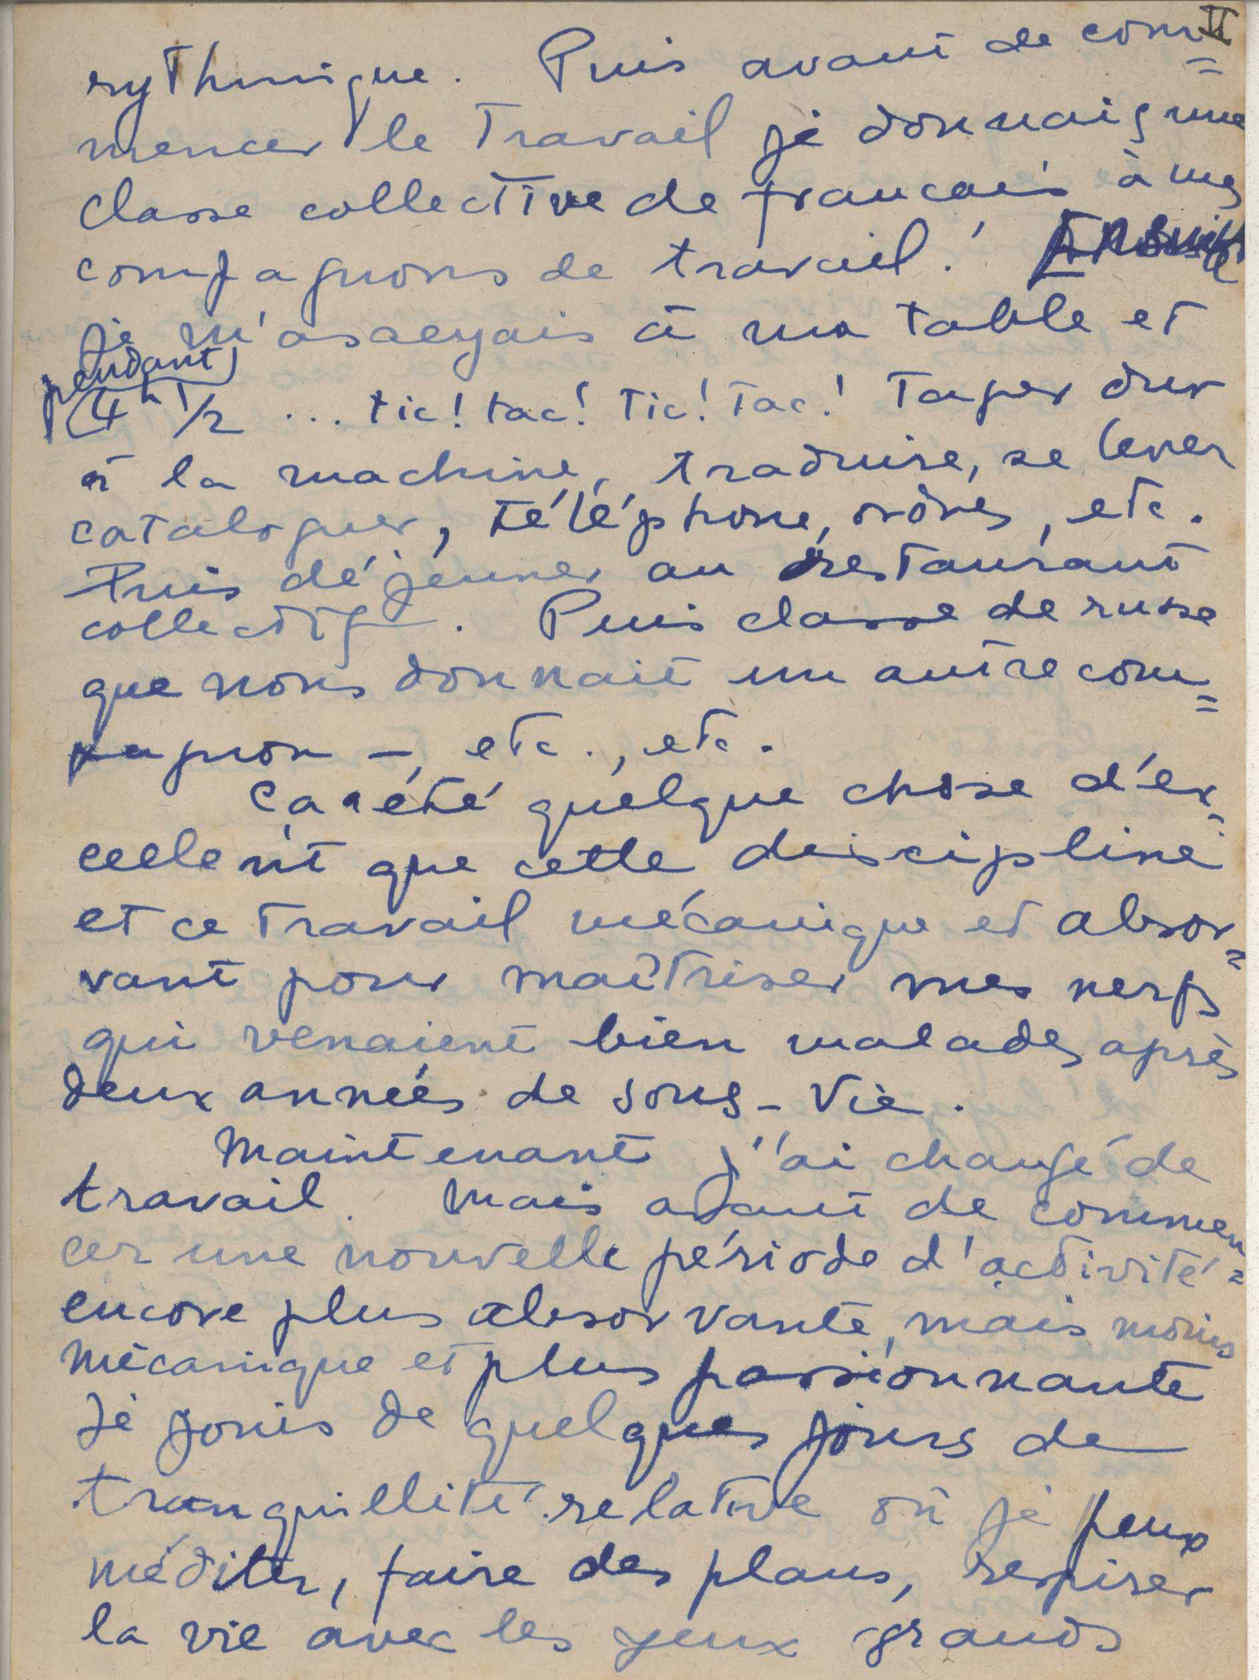 II
rythmique. Puis avant de com=
mencer le travail je donnais une
classe collective de francais à mes
compagnons de travail. Ensuite
je m'asseyais à ma table et
pendant
4 h 1/2 ... tic! tac! Tic! Tac! Taper dur
à la machine, traduire, se lever
cataloguer, téléphone, ordres, etc.
Puis déjeuner au restaurant
collectif. Puis classe de russe
que nous donnait un autre com=
pagnon -, etc., etc.
Ca a été quelque chose d'ex-
cellent que cette discipline
et ce travail mécanique et absor=
vant pour maîtriser mes nerfs
qui venaient bien malades après
deux années de sous-vie.
Maintenant j'ai changé de
travail. Mais avant de commen
cer une nouvelle période d'activité=
encore plus absorvante, mais moins
mécanique et plus passionnante
Je jouis de quelques jours de
tranquillité relative où je peux
méditer, faire des plans, respirer
la vie avec les yeux grands